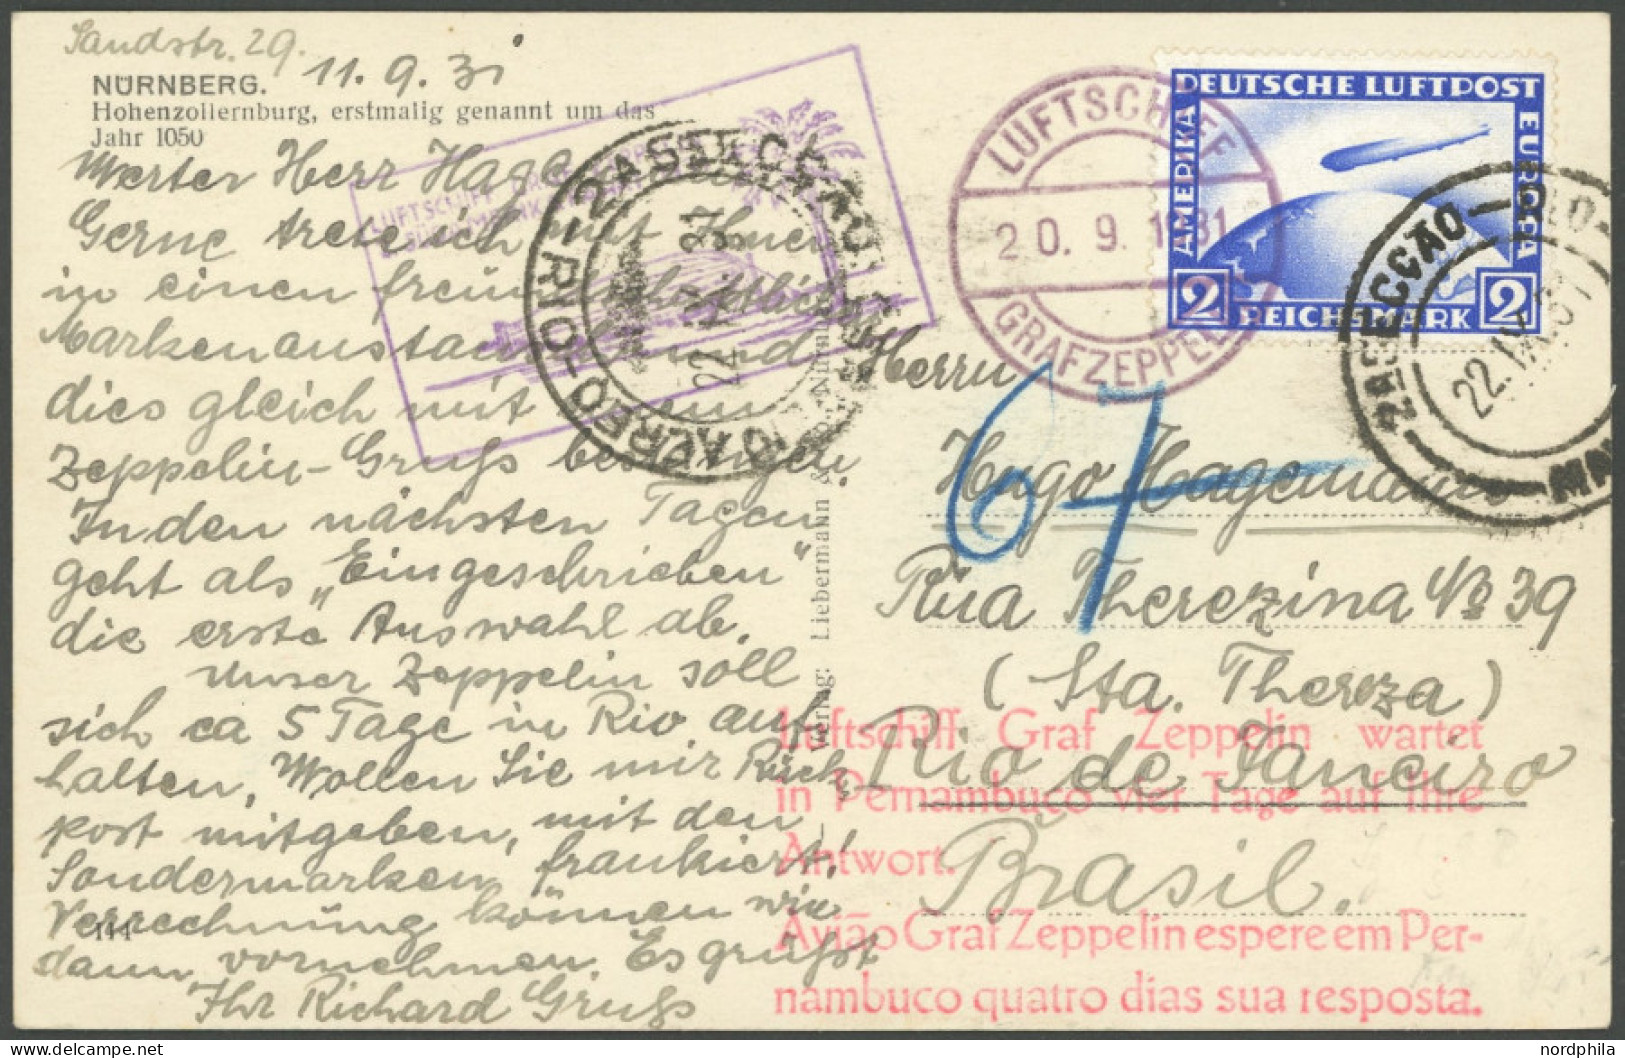 Sandstr. 29.
11.9.31
NÜRNBERG.
Hohenzollernburg, erstmalig genannt um das
Jahr 1050
Werter Herr
Gerne trete ich mit Ihnen
in einen freundschaftlichen
Markenaustausch und
dies gleich mit
Zeppelin-Gruß bestätigen.
In den nächsten Tagen
geht als „Eingeschrieben"
die erste Auswahl ab.
Unser Zeppelin soll
sich ca 5 Tage in Rio auf
halten, Wollen Sie mir Rück
post mitgeben, mit den
Sondermarken frankiert!
Verrechnung können wir
dann vornehmen. Es grüßt
Ihr Richard Gruß
111
Verlag: Liebermann &
LUFTSCHIFF
20.9.1931
GRAF ZEPPELIN
DEUTSCHE LUFTPOST
AMERIKA
EUROPA
2 REICHSMARK 2
2A SECÇÃO
22.IX.31
2A SECÇÃO
22
31
RIO
LUFTSCHIFF
Herrn
Hugo Hagemann
67
Rua Therezina No 39
(Sta. Thereza)
Rio de Janeiro
Brasil.
Luftschiff Graf Zeppelin wartet
in Pernambuco vier Tage auf Ihre
Antwort.
Avião Graf Zeppelin espere em Per-
nambuco quatro dias sua resposta.
nordphila
www.delcampe.net